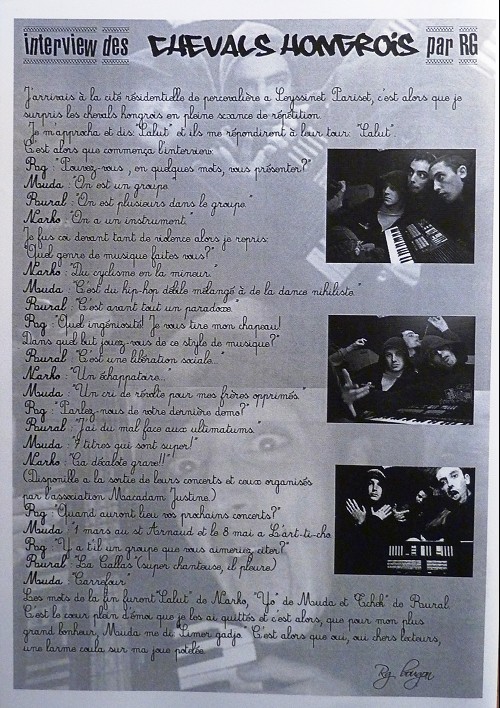 interview des CHEVALS HONGROIS par RG
J'arrivais à la cité résidentielle de percevalière a Seyssinet Pariset, c'est alors que je
surpris les chevals hongrois en pleine séance de répétition.
Je m'approcha et dis: "Salut" et ils me répondirent à leur tour: "Salut".
C'est alors que commença l'interview:
Rg : "Pouvez-vous, en quelques mots, vous présenter?"
Muda : "On est un groupe."
Paural : "On est plusieurs dans le groupe."
Narko : "On a un instrument."
Je fus coi devant tant de violence alors je repris:
"Quel genre de musique faites vous?"
Narko : "Du cyclisme en la mineur."
Muda : "C'est du hip-hop débile mélangé à de la dance nihiliste."
Paural : "C'est avant tout un paradoxe."
Rg : "Quel ingéniosité! Je vous tire mon chapeau!
Dans quel but jouez-vous de ce style de musique?"
Paural : "C'est une libération sociale..."
Narko : "Un échappatoire..."
Muda : "Un cri de révolte pour mes frères opprimés."
Rg : "Parlez-nous de votre dernière demo?"
Paural : "J'ai du mal face aux ultimatums."
Muda : "7 titres qui sont super!"
Narko : "Ca décalote grave!!"
(Disponible a la sortie de leurs concerts et ceux organisés
par l'association Macadam Justine.)
Rg : "Quand auront lieu vos prochains concerts?"
Muda : "1 mars au st Arnaud et le 8 mai a L'art-ti-cho
Rg : "Y a t'il un groupe que vous aimeriez citer?"
Paural : "La Callas (super chanteuse, il pleure)
Muda : "Carrefour"
Les mots de la fin furent "Salut" de Narko, "Yo" de Muda et "Tchok" de Paural.
C'est le cœur plein d'émoi que je les ai quittés et c'est alors, que pour mon plus
grand bonheur, Muda me dit "Limer gadjo". C'est alors que oui, oui chers lecteurs,
une larme coula sur ma joue potelée.
Rg bougon